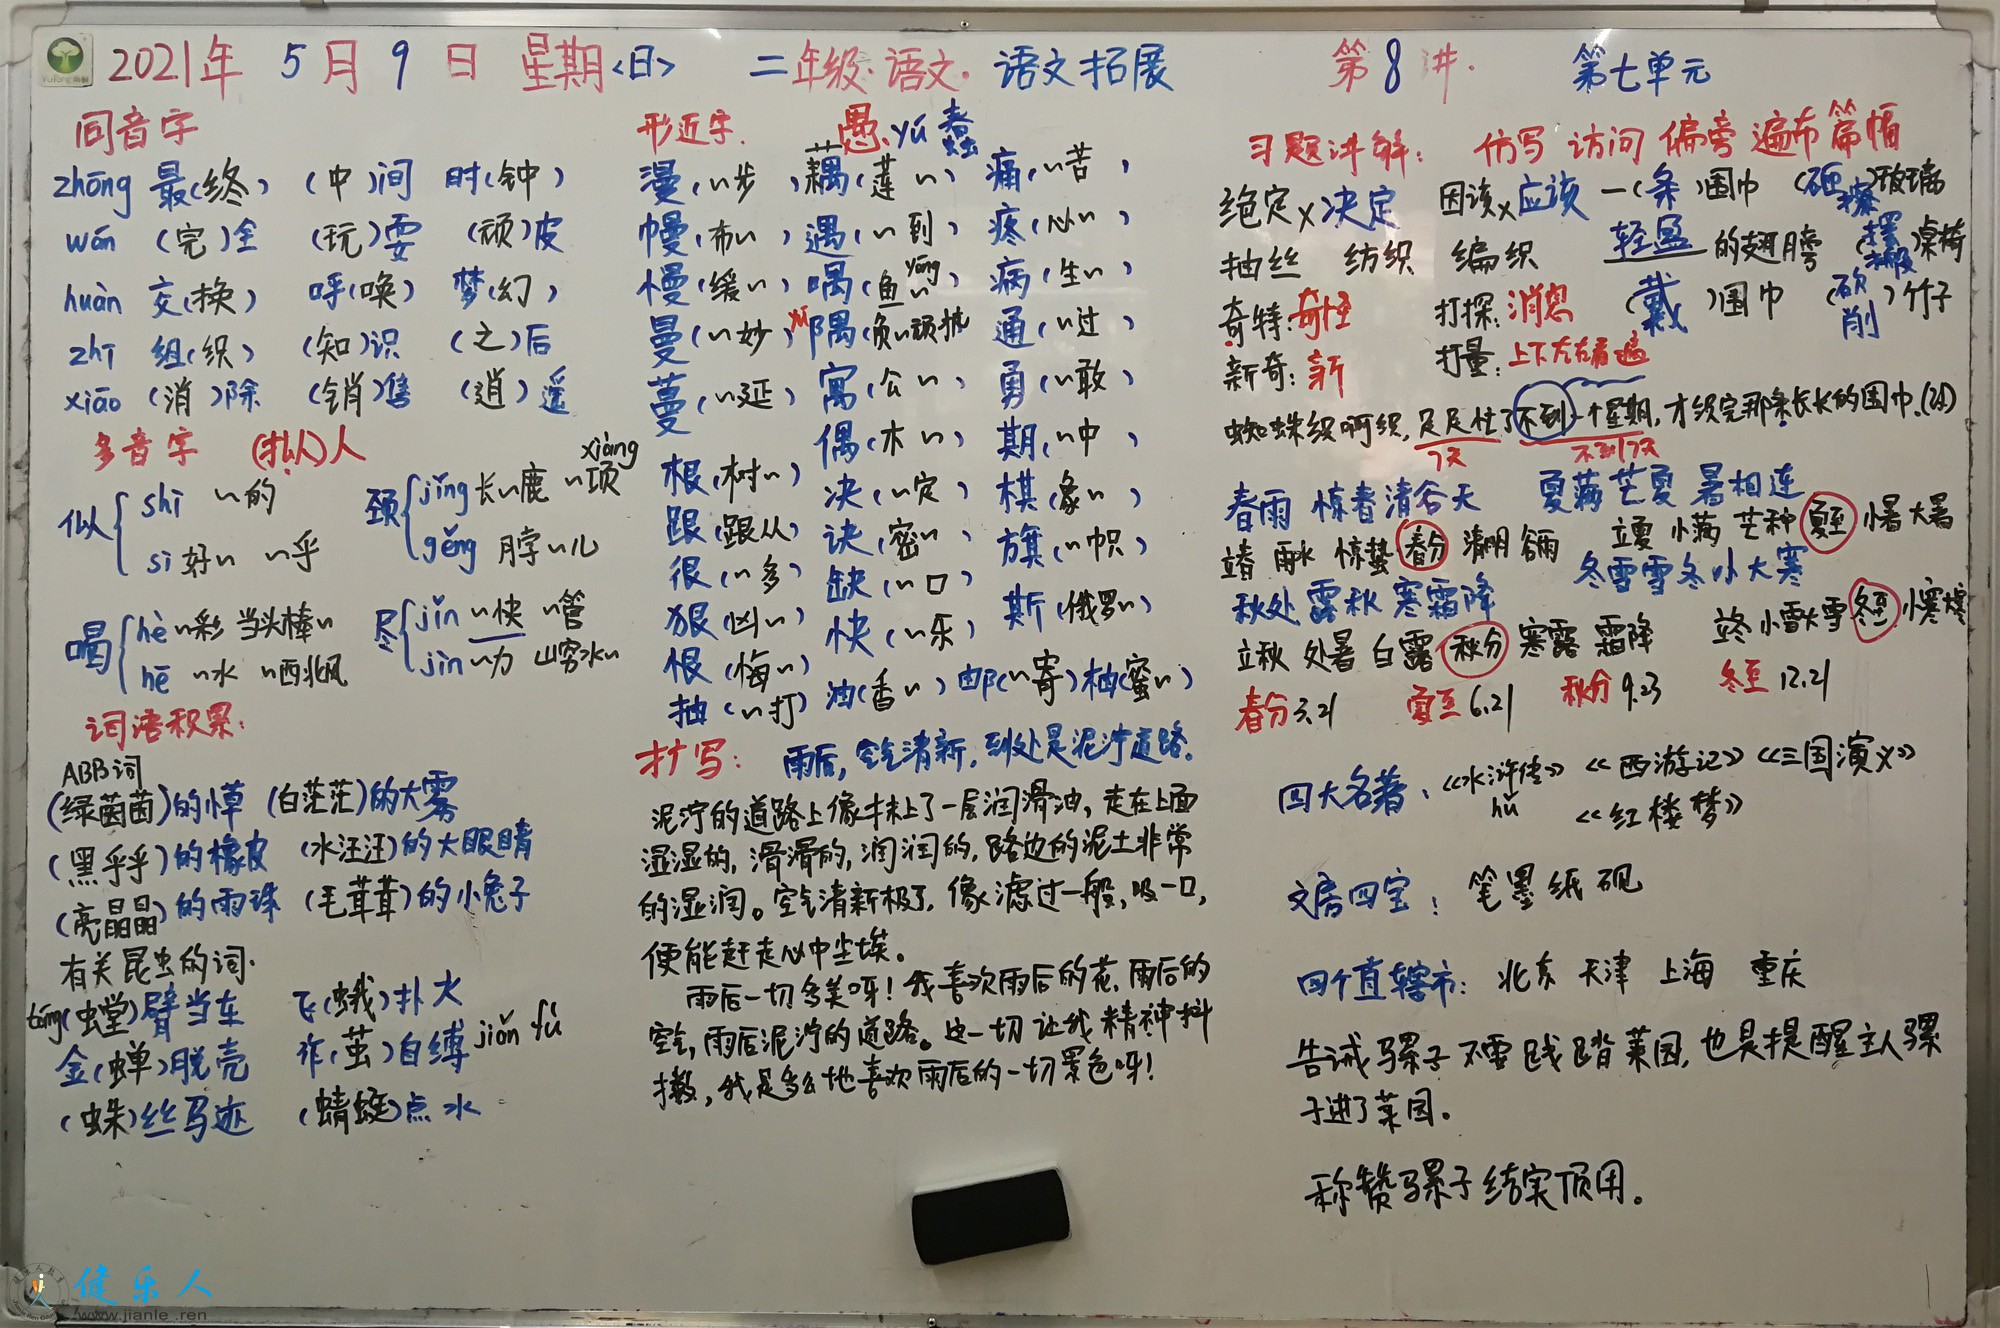 2021年 5月9日 星期<日> 二年级·语文· 语文拓展 第8讲· 第七单元
同音字
zhōng 最(终) (中)间 时(钟)
wán (完)全 (玩)耍 (顽)皮
huàn 交(换) 呼(唤) 梦(幻)
zhī 组(织) (知)识 (之)后
xiāo (消)除 (销)售 (逍)遥
多音字 (拟人)人
似 shì ~的
sì 好~ ~乎
颈 jǐng 长~鹿 ~项 xiàng
gěng 脖~儿
喝 hè ~彩 当头棒~
hē ~水 ~西北风
尽 jǐn ~快 ~管
jìn ~力 山穷水~
词语积累:
ABB词
(绿茵茵)的小草 (白茫茫)的大雾
(黑乎乎)的橡皮 (水汪汪)的大眼睛
(亮晶晶)的雨珠 (毛茸茸)的小兔子
有关昆虫的词·
táng(螳)臂当车 飞(蛾)扑火
金(蝉)脱壳 作(茧)自缚 jiǎn fù
(蛛)丝马迹 (蜻蜓)点水
形近字. 愚、yú 蠢
漫(~步) 藕(莲~) 痛(~苦)
幔(布~) 遇(~到) 疼(心~)
慢(缓~) 喁(鱼~) yóng 病(生~)
曼(~妙) yú 隅(负~顽抗) 通(~过)
蔓(~延) 寓(公~) 勇(~敢)
偶(木~) 期(~中)
根(树~) 决(~定) 棋(象~)
跟(跟从) 诀(密~) 旗(~帜)
很(~多) 缺(~口)
狠(凶~) 快(~乐) 斯(俄罗~)
恨(悔~)
抽(~打) 油(香~) 邮(~寄) 柚(蜜~)
扩写: 雨后,空气清新,到处是泥泞道路。
泥泞的道路上像抹上了一层润滑油,走在上面
湿湿的,滑滑的,润润的,路边的泥土非常
的湿润。空气清新极了,像滤过一般,吸一口,
便能赶走心中尘埃。
雨后一切多美呀!我喜欢雨后的花,雨后的
空气,雨后泥泞的道路。这一切让我精神抖
擞,我是多么地喜欢雨后的一切景色呀!
习题讲解: 仿写 访问 偏旁 遍布 篇幅
绝定×决定 因该×应该 一(条)围巾 (砸 擦)玻璃
抽丝 纺织 编织 轻盈的翅膀 (摆 搬)桌椅
奇特:奇怪 打探:消息 (戴)围巾 (砍 削)竹子
新奇:新 打量:上下左右看遍
蜘蛛织啊织,足足忙了不到一个星期,才织完那条长长的围巾。(改)
7天 不到7天
春雨惊春清谷天 夏满芒夏暑相连
立春 雨水 惊蛰 春分 清明 谷雨 立夏 小满 芒种 夏至 小暑 大暑
秋处露秋寒霜降 冬雪雪冬小大寒
立秋 处暑 白露 秋分 寒露 霜降 立冬 小雪 大雪 冬至 小寒 大寒
春分3.21 夏至6.21 秋分9.23 冬至12.21
四大名著、《水浒传》《西游记》《三国演义》
hǔ 《红楼梦》
文房四宝: 笔墨纸砚
四个直辖市: 北京 天津 上海 重庆
告诫骡子不要践踏菜园,也是提醒主人骡
子进了菜园。
称赞骡子结实顶用。
健乐人
www.jianle.ren